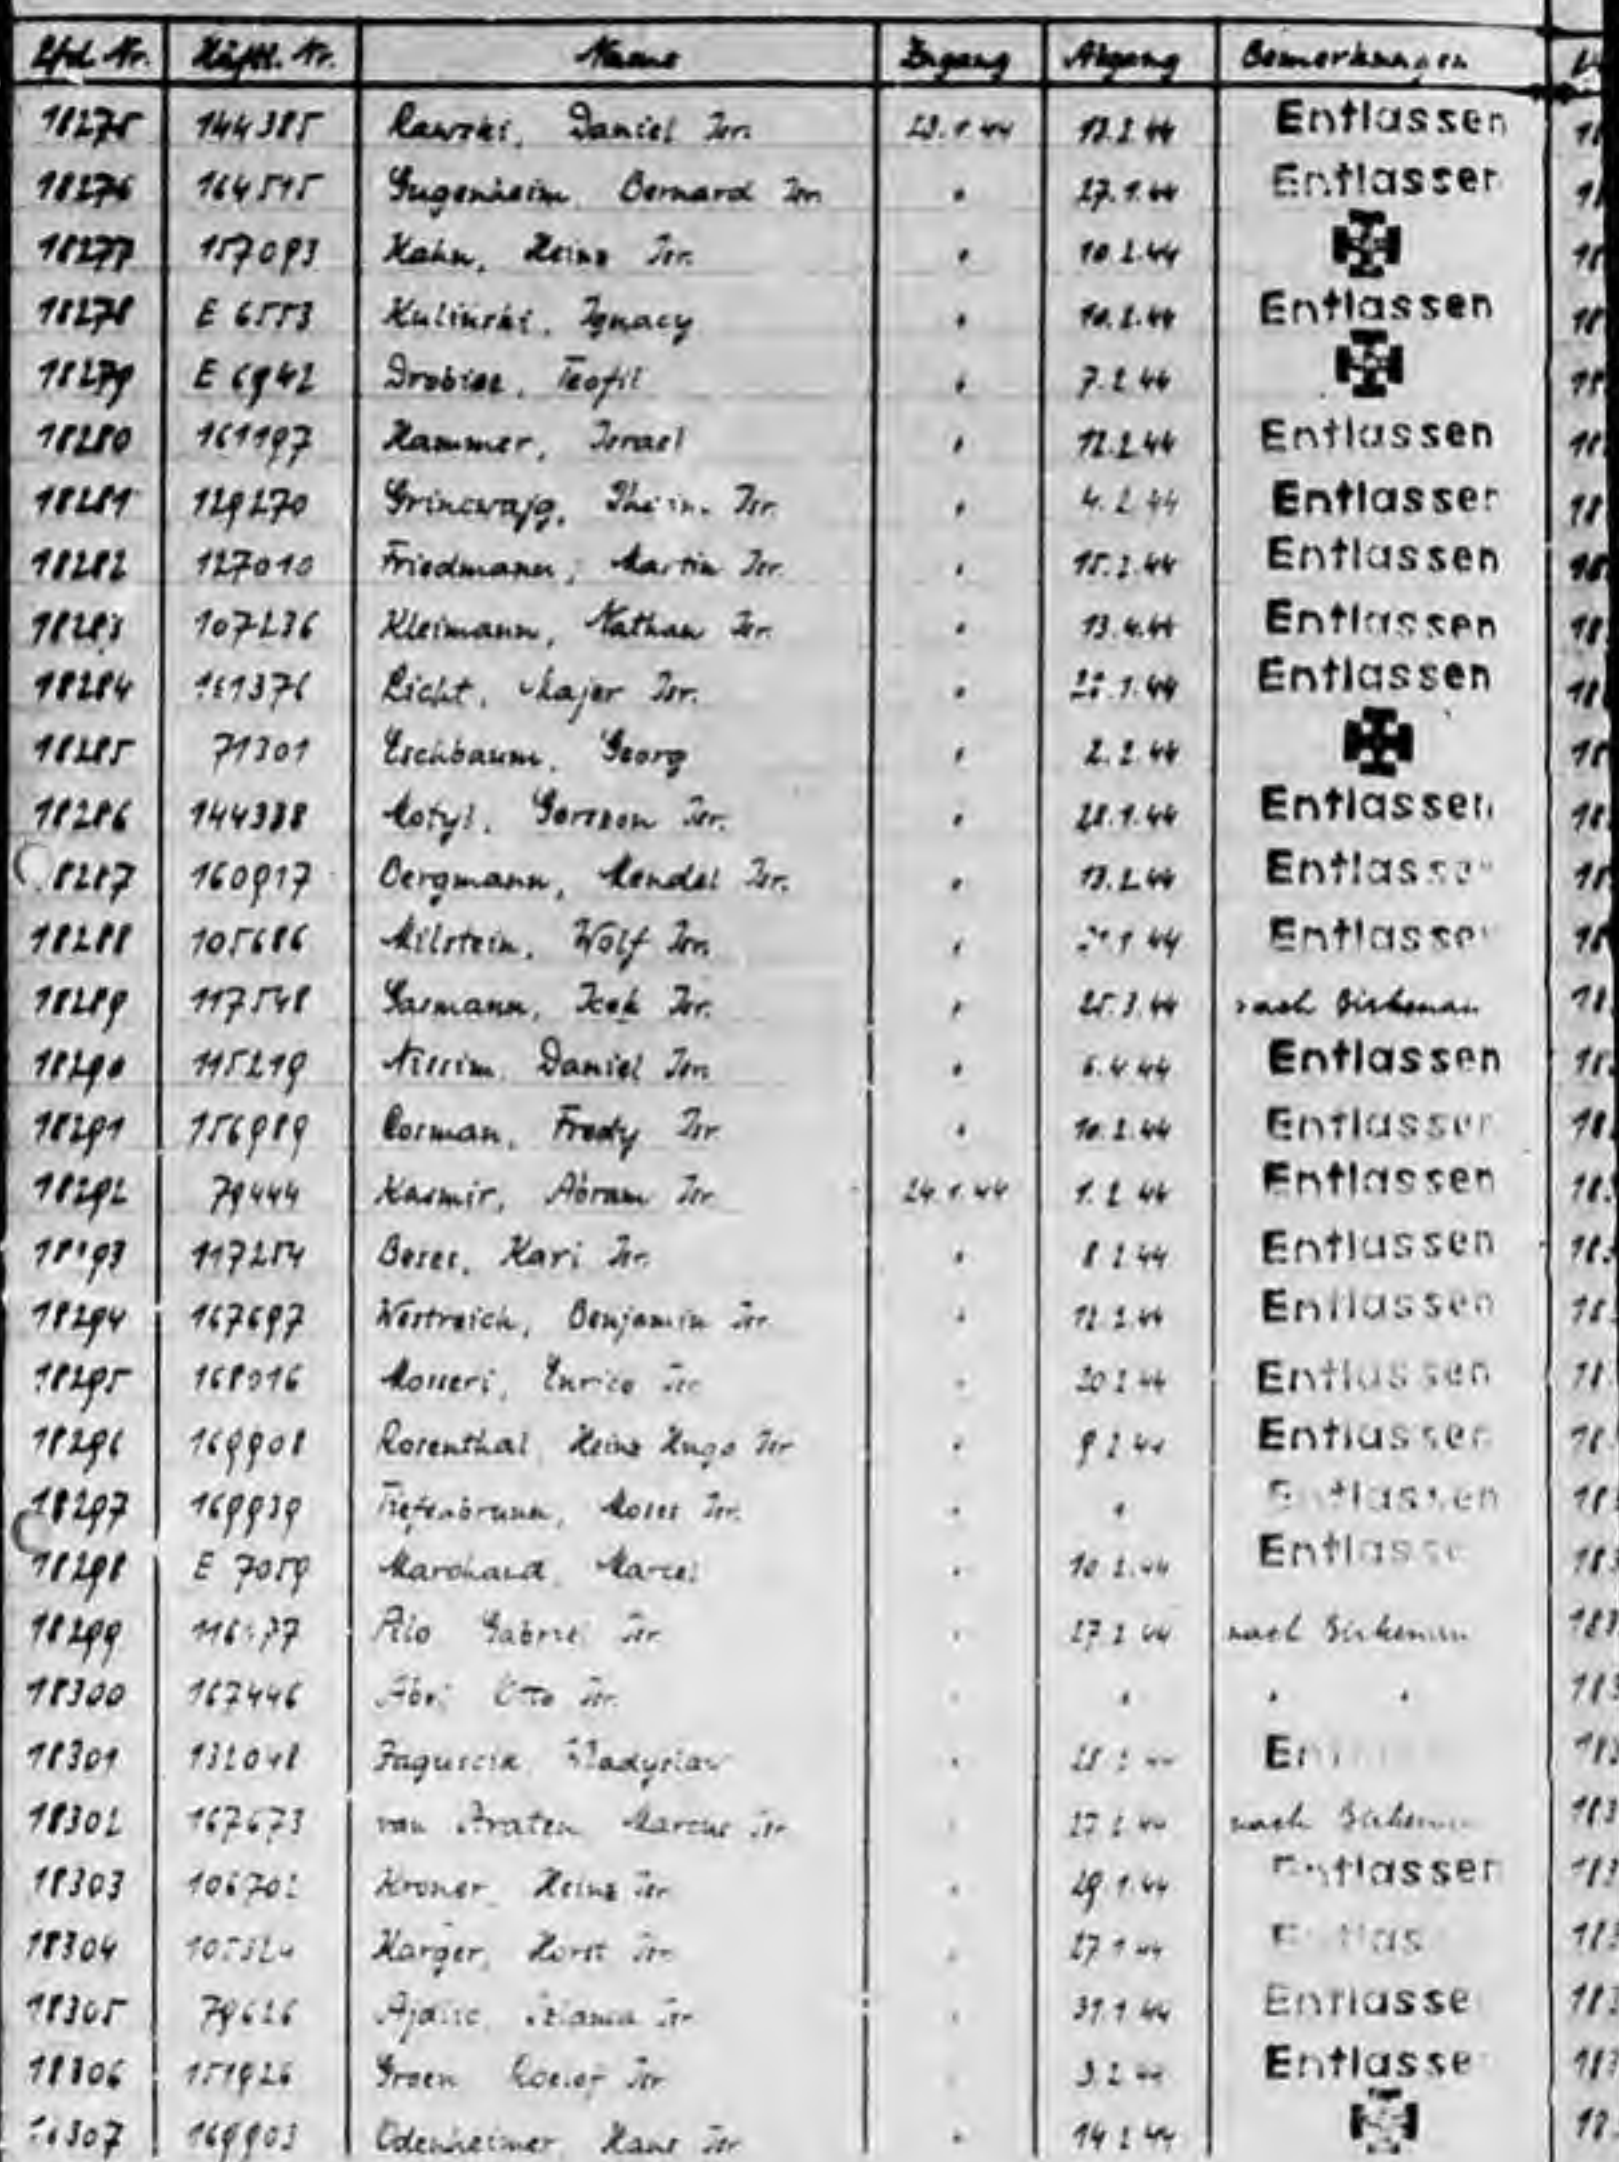 Lfd. Nr. Häftl. Nr. Name Zugang Abgang Bemerkungen
18275 144385 Rawski, Daniel Isr. 23.1.44 17.2.44 Entlassen
18276 164515 Gugenheim, Bernard Isr. " 27.1.44 Entlassen
18277 157093 Kahn, Heinz Isr. " 10.2.44
18278 E 6553 Kulinski, Ignacy " 10.2.44 Entlassen
18279 E 6942 Teofil " 7.2.44
18280 161197 Hammer, Israel " 12.2.44 Entlassen
18281 129270 Grincwajg, Isr. " 4.2.44 Entlassen
18282 127010 Friedmann, Martin Isr. " 15.2.44 Entlassen
18283 107236 Kleimann, Nathan Isr. " 13.4.44 Entlassen
18284 161376 Licht, Majer Isr. " .1.44 Entlassen
18285 71301 Eschbaum, Georg " 2.2.44
18286 144338 Motyl, Gerszon Isr. " 28.1.44 Entlassen
18287 160917 Bergmann, Mendel Isr. " 13.2.44 Entlassen
18288 105686 Milstein, Wolf Isr. " 1.44 Entlassen
18289 117548 Gasmann, Icek Isr. " 25.3.44 nach Birkenau
18290 115219 Nissim, Daniel Isr. " 6.4.44 Entlassen
18291 156989 Rosman, Fredy Isr. " 10.2.44 Entlassen
18292 79444 Kasmir, Abram Isr. 24.1.44 1.2.44 Entlassen
18293 117254 Beses, Kari Isr. " 8.2.44 Entlassen
18294 167697 Westreich, Benjamin Isr. " 12.2.44 Entlassen
18295 168016 Mosseri, Enrico Isr. " 20.2.44 Entlassen
18296 169908 Rosenthal, Heinz Hugo Isr. " 9.2.44 Entlassen
18297 169939 Tiefenbrunn, Moses Isr. " " Entlassen
18298 E 7059 Marchand, Marcel " 10.2.44 Entlassen
18299 Pilo Gabriel Isr. " 27.2.44 nach Birkenau
18300 167446 Otto Isr. " " " "
18301 132048 Wladyslaw " Entlassen
18302 167673 van Praten, Marcus Isr. " 27.2.44 nach Birkenau
18303 Kroner, Heinz Isr. " 29.1.44 Entlassen
18304 Karger, Horst Isr. " 27.1.44 Entlassen
18305 79626 Isr. " 31.1.44 Entlassen
18306 151926 Groen Roelof Isr. " 3.2.44 Entlassen
18307 169903 Odenheimer, Hans Isr. " 14.2.44